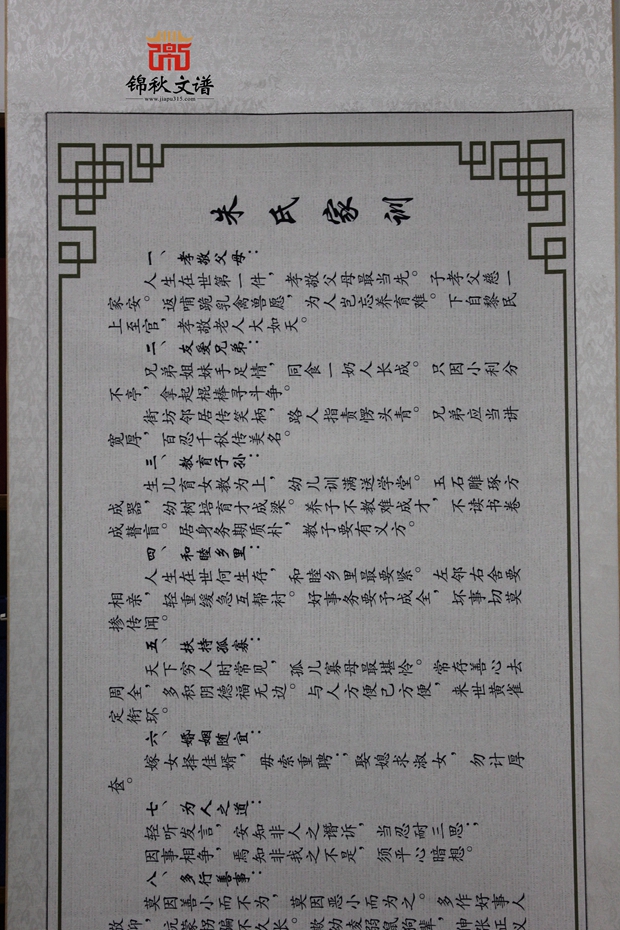 锦秋文谱
www.jiapu315.com
朱氏家训
一、孝敬父母：
人生在世第一件，孝敬父母最当先。子孝父慈一
家安。返哺跪乳禽兽愿，为人岂忘养育难。下自黎民
上至官，孝敬老人大如天。
二、友爱兄弟：
兄弟姐妹手足情，同食一奶人长成。只因小利分
不亭，拿起棍棒寻斗争。
街坊邻居传笑柄，路人指责愣头青。兄弟应当讲
宽厚，百忍千秋传美名。
三、教育子孙：
生儿育女教为上，幼儿训满送学堂。玉石雕琢方
成器，幼树培育才成梁。养子不教难成才，不读书卷
成瞽盲。居身务期质朴，教子要有义方。
四、和睦乡里：
人生在世何生存，和睦乡里最要紧。左邻右舍要
相亲，轻重缓急互帮衬。好事务要予成全，坏事切莫
掺传闻。
五、扶持孤寡：
天下穷人时常见，孤儿寡母最堪怜。常存善心去
周全，多积阴德福无边。与人方便己方便，来世黄雀
定衔环。
六、婚姻随宜：
嫁女择佳婿，毋索重聘；，娶媳求淑女，勿计厚
奁。
七、为人之道：
轻听发言，安知非人之谮诉，当忍耐三思；，
因事相争，焉知非我之不是，须平心暗想。
八、多行善事：
莫因善小而不为，莫因恶小而为之。多作好事人